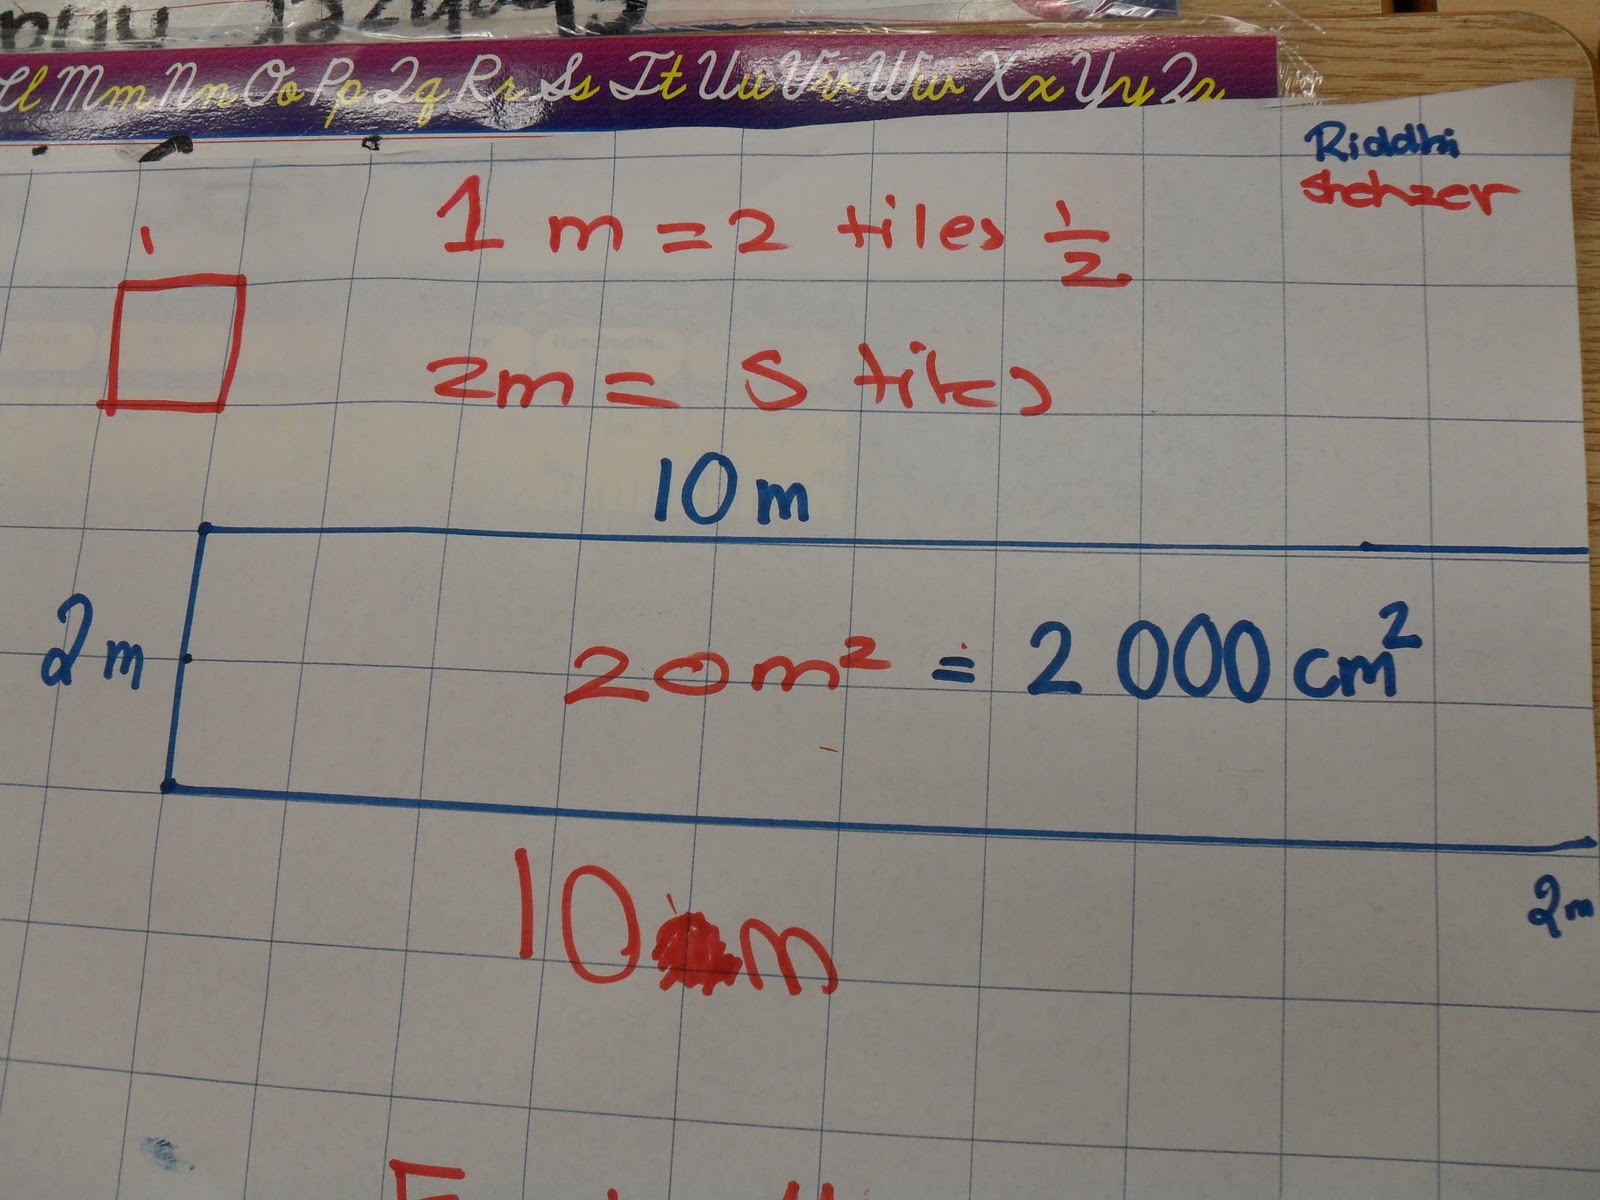 Ll Mm Nn Oo Pp Qq Rr Ss Tt Uu Vv Ww Xx Yy Zz
Riddhi
Shehzer
1
1 m = 2 tiles 1/2
2m = 5 tiles
10 m
2 m
20 m² = 2 000 cm²
10 m
2m